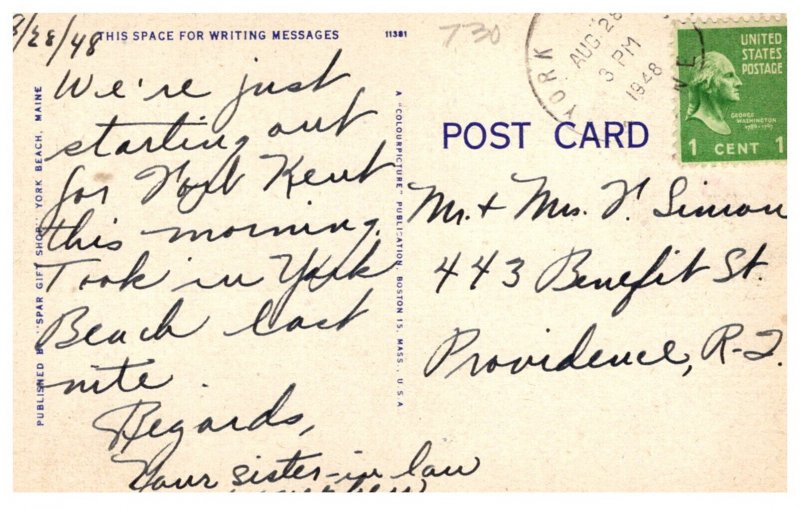 8/28/48
THIS SPACE FOR WRITING MESSAGES
11381
730
We're just
starting out
for Fort Kent
this morning.
Took in York
Beach last
nite.
Regards,
Your sister-in law
PUBLISHED BY "SPAR GIFT SHOP" YORK BEACH, MAINE
A "COLOURPICTURE" PUBLICATION, BOSTON 15, MASS., U.S.A
YORK
AUG 28
3 PM
1948
UNITED
STATES
POSTAGE
GEORGE
WASHINGTON
1789-1797
1 CENT 1
POST CARD
Mr. + Mrs. V. Simon
443 Benefit St.
Providence, R-I.